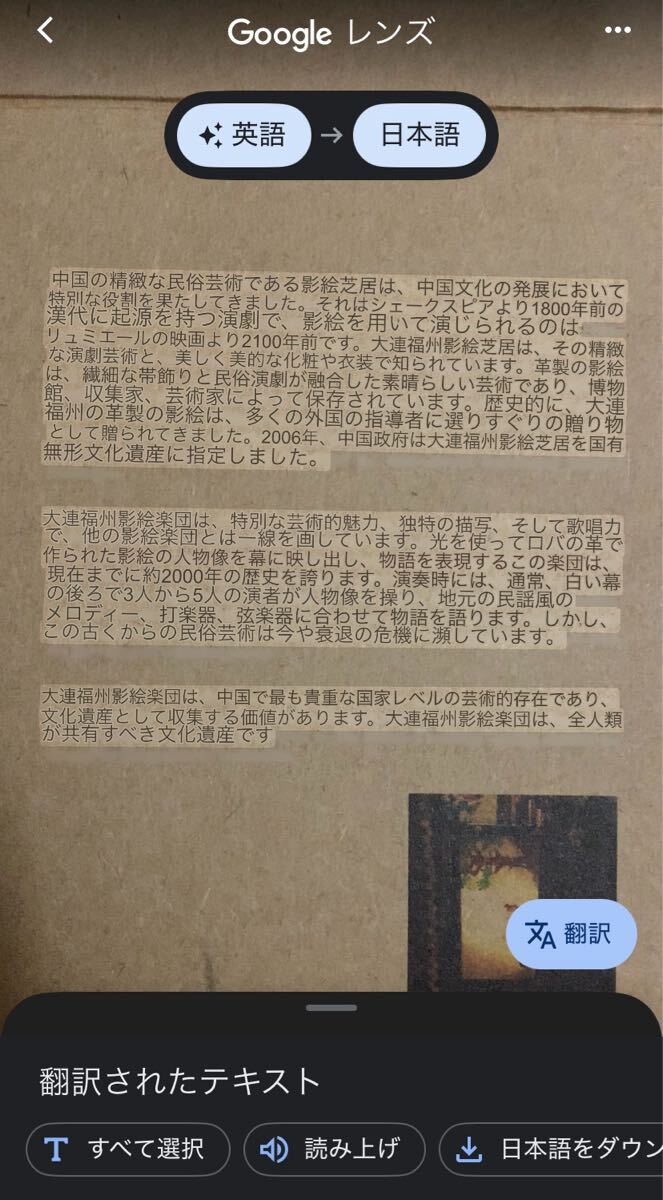 Google レンズ
英語 → 日本語
中国の精緻な民俗芸術である影絵芝居は、中国文化の発展において
特別な役割を果たしてきました。それはシェークスピアより1800年前の
漢代に起源を持つ演劇で、影絵を用いて演じられるのは
リュミエールの映画より2100年前です。大連福州影絵芝居は、その精緻
な演劇芸術と、美しく美的な化粧や衣装で知られています。革製の影絵
は、繊細な帯飾りと民俗演劇が融合した素晴らしい芸術であり、博物
館、収集家、芸術家によって保存されています。歴史的に、大連
福州の革製の影絵は、多くの外国の指導者に選りすぐりの贈り物
として贈られてきました。2006年、中国政府は大連福州影絵芝居を国有
無形文化遺産に指定しました。
大連福州影絵楽団は、特別な芸術的魅力、独特の描写、そして歌唱力
で、他の影絵楽団とは一線を画しています。光を使ってロバの革で
作られた影絵の人物像を幕に映し出し、物語を表現するこの楽団は、
現在までに約2000年の歴史を誇ります。演奏時には、通常、白い幕
の後ろで3人から5人の演者が人物像を操り、地元の民謡風の
メロディー、打楽器、弦楽器に合わせて物語を語ります。しかし、
この古くからの民俗芸術は今や衰退の危機に瀕しています。
大連福州影絵楽団は、中国で最も貴重な国家レベルの芸術的存在であり、
文化遺産として収集する価値があります。大連福州影絵楽団は、全人類
が共有すべき文化遺産です
文A 翻訳
翻訳されたテキスト
T すべて選択
読み上げ
日本語をダウン